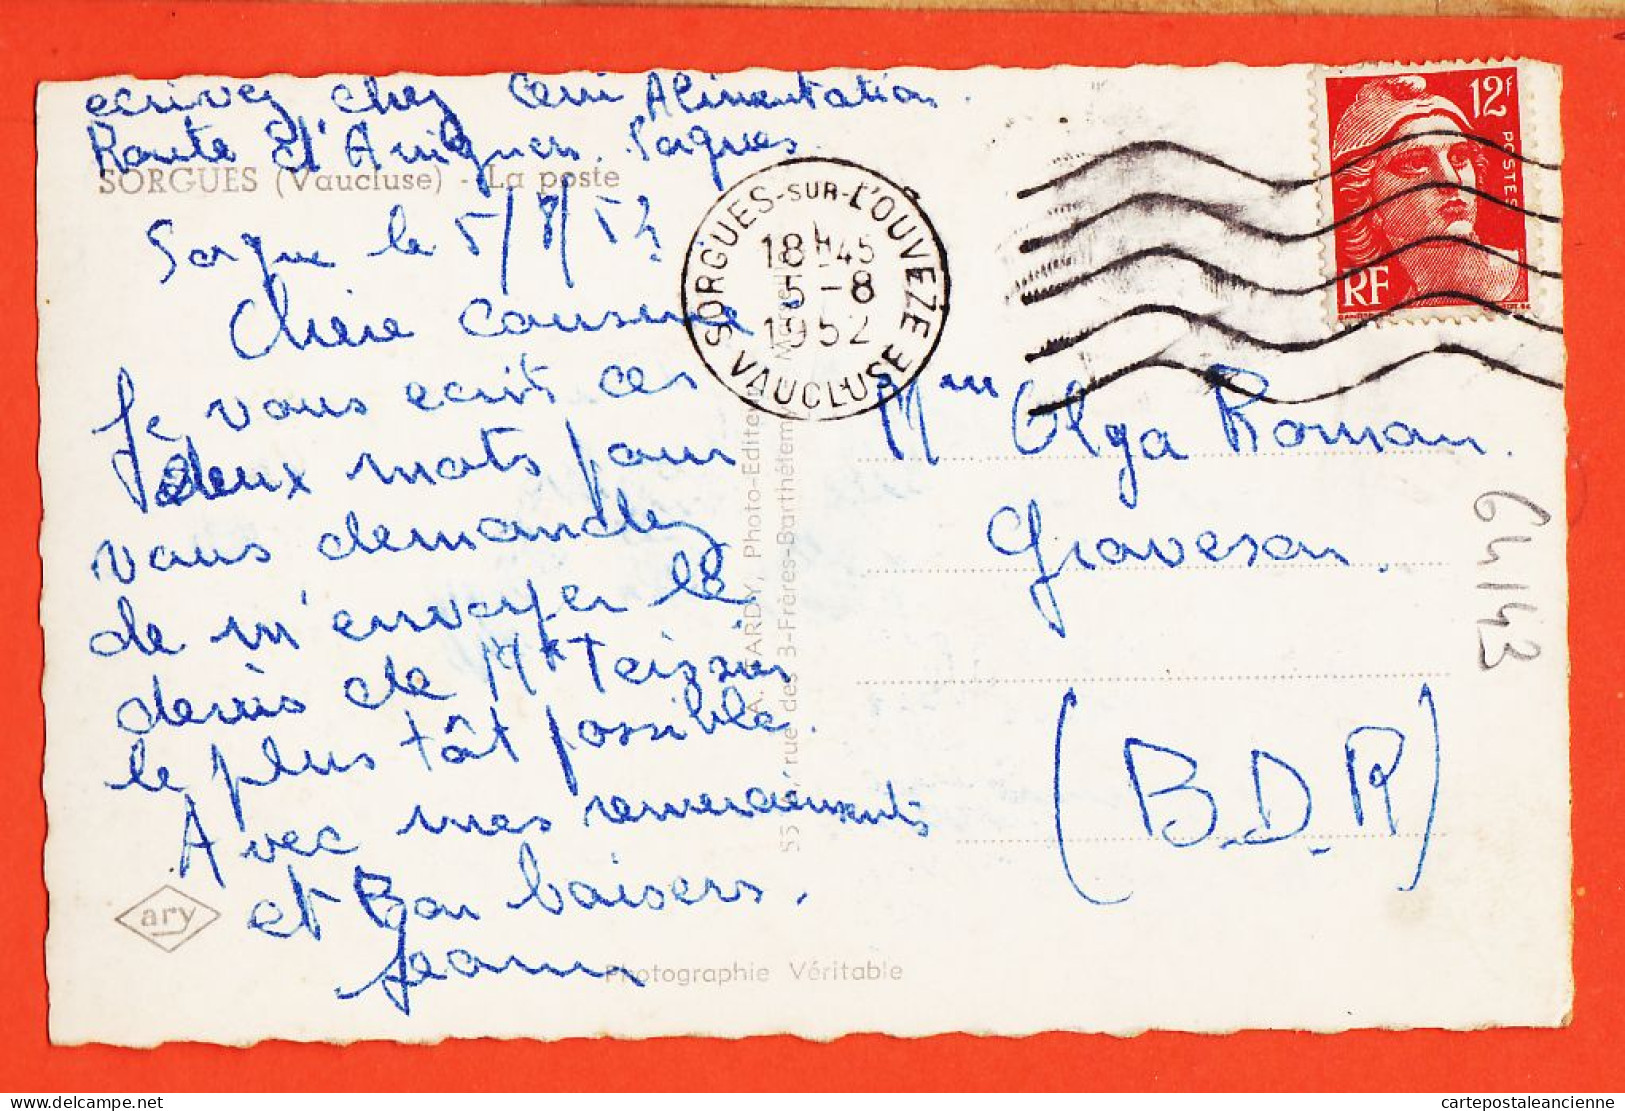 ecrivez chez Alimentation.
Route d'Sorgues.
SORGUES (Vaucluse) - La poste
Sorgue le 5/8/52
Chere cousine
Je vous ecrits ces
deux mots pour
vous demandez
de m'envoyer le
devis de Mr Teissier
le plus tôt possible.
Avec mes remerciements
et Bon baisers.
Jeann
ary
Photographie Véritable
A. TARDY, Photo-Editeur
55, rue des 3-Frères-Barthélemy, Marseille
SORGUES-SUR-L'OUVEZE
18H45
5-8
1952
VAUCLUSE
12F
POSTES
RF
Mme Olga Roman.
Graveson.
(B.D.R)
64143
cartepostaleancienne
delcampe.net